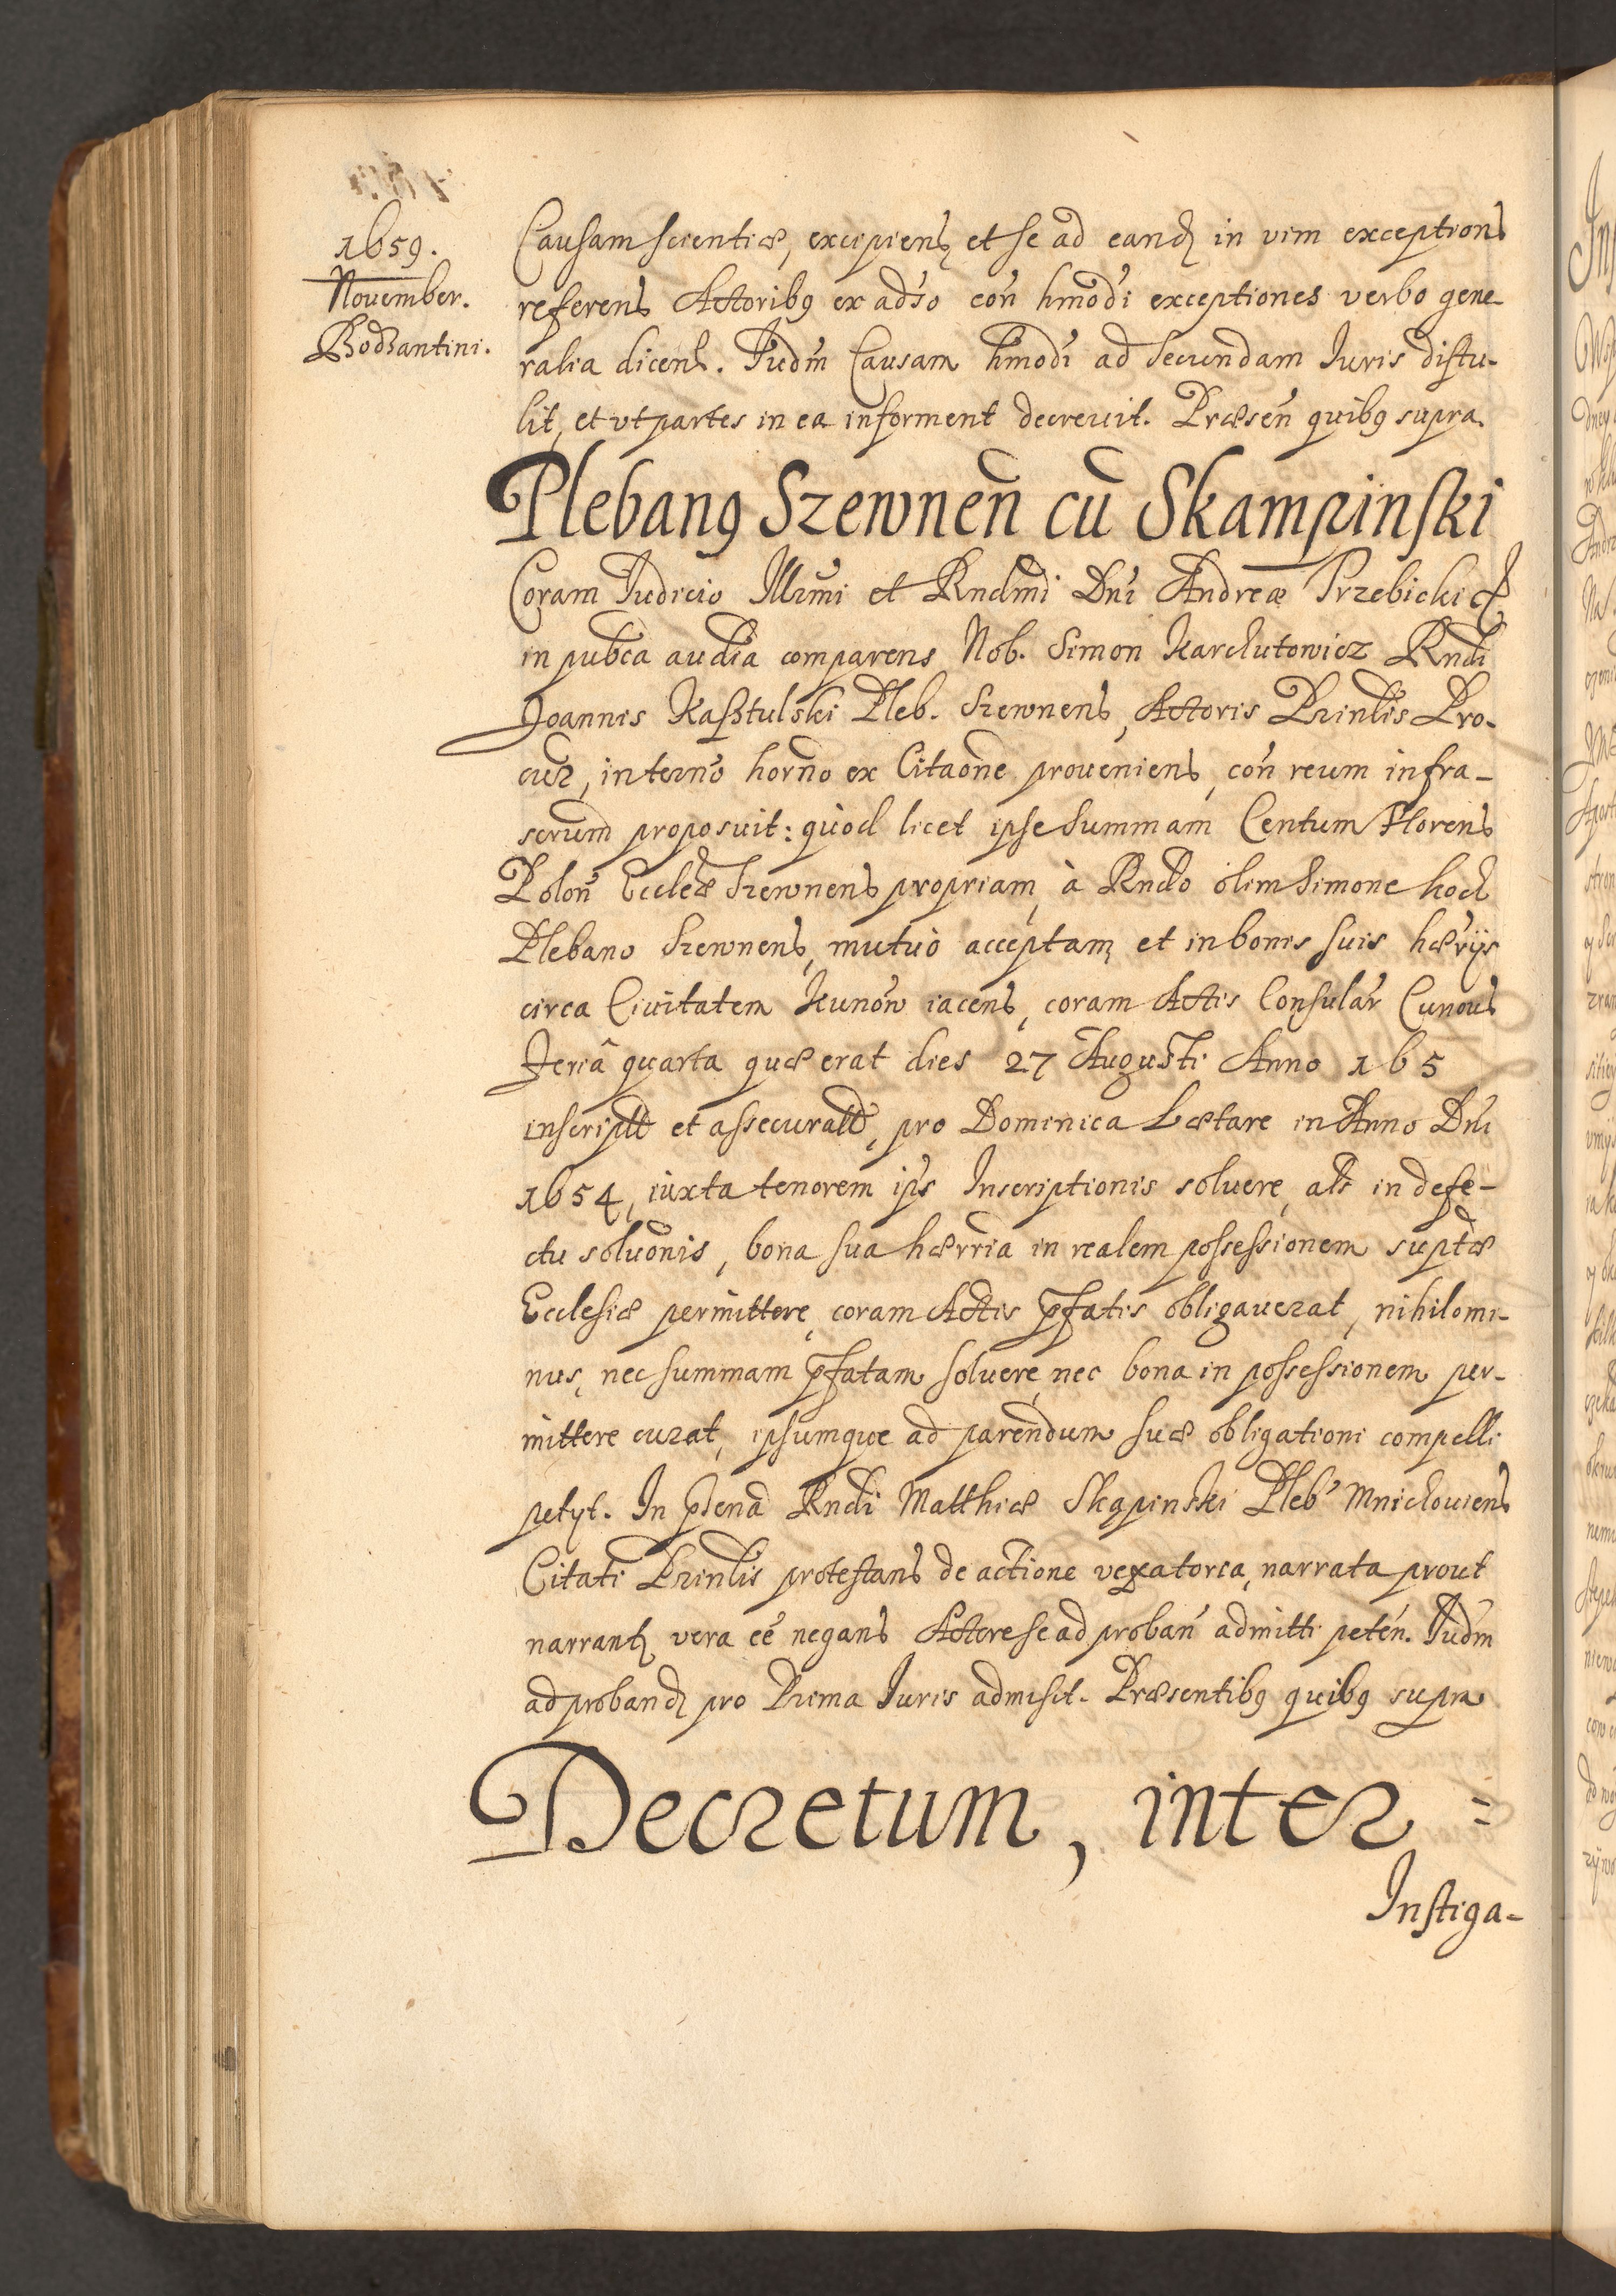 1659.
November.
Bodzantini.
Causam scientiæ, excipiens, et se ad eand in vim exceptions
referens Actoribꝯ ex adŝo coñ hmōdi exceptiones verbo gene-
ralia dicens. Judm̄ Causam hmōdi ad secundam Iuris distu-
lit, et vt partes in ea informent decrevit. Præsen̄ quibꝯ supra.
Plebanꝯ Szewnen̄ cū Skampinski
Coram Judicio Illr̄mi et Rndm̄i Dn̄i Andreæ Trzebicki &
in pub̄ca aud̄ia comparens Nob. Simon Karchutowicz Rnd̄i
Joannis Kasztulski Pleb. Szewnens, Actoris Prin̄lis Pro-
cur, in tern̄o horn̄o ex Citaōne proveniens, coñ reum infra-
scrum̄ proposuit: quòd licet ipse summam Centum Florens
Polon̄ Eccleæ Szewnens propriam, à Rndo olim Simone Koch
Plebano Szewnens, mutuò acceptam, et in bonis suis hær̄ijs
circa Civitatem Kunów iacens, coram Actis Consular̄ Cunovs
Feriâ quarta quæ erat dies 27 Augusti Anno 165
inscriptt et assecuratt, pro Dominica Lætare in Anno Dn̄i
1654, iuxta tenorem ip̄s Inscriptionis solvere, als̄ in defe-
ctu solvōnis, bona sua hærr̄ia in realem possessionem supt̄æ
Ecclesiæ permittere, coram Actis p̄fatis obligaverat, nihilomi-
nus, nec summam p̄fatam solvere, nec bona in possessionem per-
mittere curat, ipsumque ad parendum suæ obligationi compelli
petyt. In p̄sen̄a Rnd̄i Matthiæ Skąpinski Pleb̄ Mnichoviens
Citati Prin̄lis protestans de actione vexatoria, narrata prout
narrant vera eē negans Actore se ad proban̄ admitti peten̄. Judm̄
ad proband pro Prima Iuris admisit. Præsentibꝯ quibꝯ supra
Decretum, inter =
Instiga-